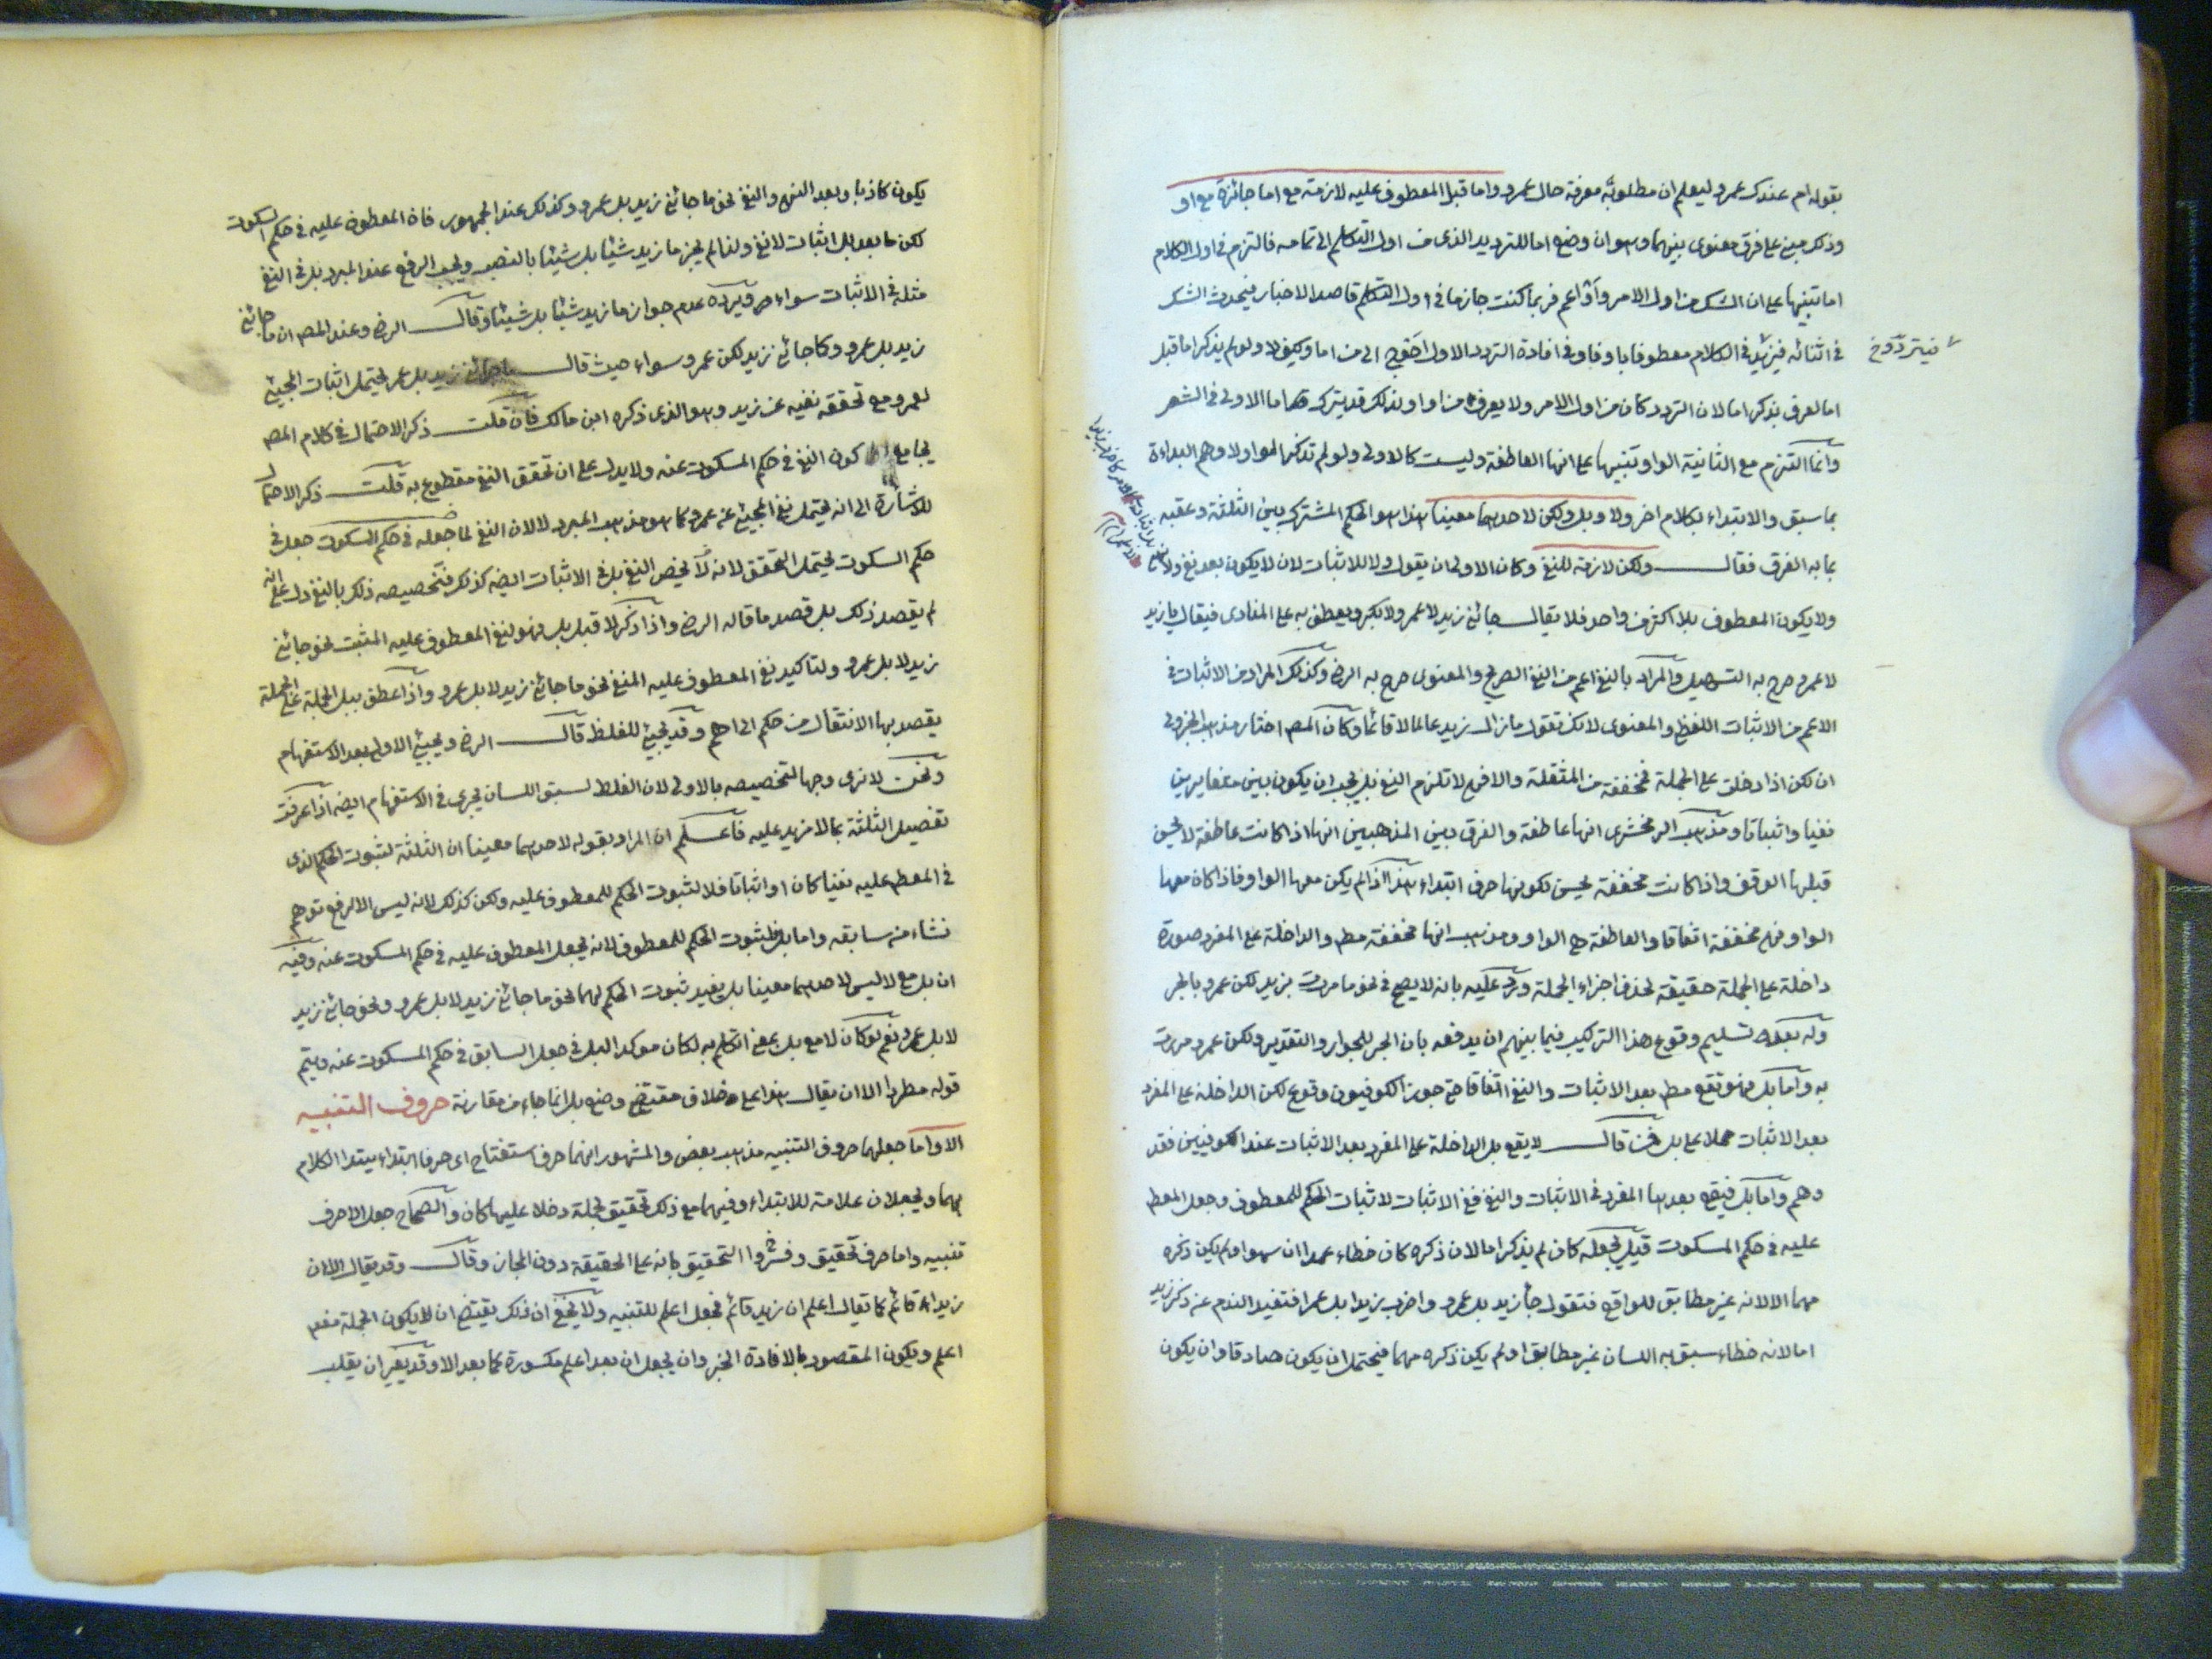 بقوله ام عندك عمرو ليعلم ان مطلوبه معرفة حال عمرو واما قبل المعطوف عليه لازمة مع اما جائزة مع او
وذكر مبني على فرق معنوي بينهما وهو ان وضع اما للترديد الذي من اول التكلم الى تمامه فالتزم في اول الكلام
اما تنبيها على ان الشك من اول الامر واو اعم فربما كنت جازما في اول التكلم قاصدا الاخبار فيحدث الشك
في اثنائه فيزيد في الكلام معطوفا باو فاو في افادة التردد الاول احوج الى من اما وكيف لا ولو لم يذكر اما قبل
اما لعرف بذكر اما لان التردد كان من اول الامر ولا يعرف من او او لذلك قد يترك اما الاولى في الشعر
وانما التزم مع الثانية الواو تنبيها على انها العاطفة وليست كالاولى ولو لم تذكر الواو لاوهم البداءة
بما سبق والابتداء بكلام اخر ولا وبل ولكن لاحدهما معينا هذا هو الحكم المشترك بين الثلثة وعقبه
بما به الفرق فقال ولكن لازمة للنفي وكان الاولى ان يقول ولا للاثبات لان لا يكون بعد نفي
ولا يكون المعطوف بلا اكثر من واحد فلا يقال جائني زيد لا عمرو لا بكر ويعطف به على المنادى فيقال يا زيد
لا عمرو صرح به التسهيل والمراد بالنفي اعم من النفي الصريح والمعنوي صرح به الرضي وكذلك المراد من الاثبات في
الاعم من الاثبات اللفظي والمعنوي لانك تقول ما زال زيد عالما لا قائما وكان المص اختار مذهب الجزولي
ان لكن اذا دخلت على الجملة مخففة من المثقلة والا فهي لا تلزم النفي بل يجب ان يكون بين متغايرين
نفيا واثباتا ومذهب الزمخشري انها عاطفة والفرق بين المذهبين انها اذا كانت عاطفة لا يحسن
قبلها الوقف واذا كانت مخففة يحسن لكونها حرف ابتداء هذا اذا لم يكن معها الواو فاذا كان معها
الواو فهي مخففة اتفاقا والعاطفة هي الواو ومذهب انها مخففة مطم والداخلة على المفرد صورة
داخلة على الجملة حقيقة بحذف اجزاء الجملة ورد عليه بانه لا يصح في نحو ما مررت بزيد لكن عمرو بالجر
وله بعد تسليم وقوع هذا التركيب فيما بينهم ان يدفعه بان الجر للجوار والتقدير ولكن عمرو مررت
به واما بل فهو تقع مطم بعد الاثبات والنفي اتفاقا حتى جوز الكوفيون وقوع لكن الداخلة على المفرد
بعد الاثبات حملا على بل فمن قال لا يقع بل الداخلة على المفرد بعد الاثبات عند الكوفيين فقد
وهم واما بل فيقع بعدها المفرد في الاثبات والنفي ففي الاثبات لاثبات الحكم للمعطوف وجعل المعطم
عليه في حكم المسكوت قبل يجعله كان لم يذكر اما لان ذكره كان خطاء عمدا ان سهوا ولم يكن ذكره
مهما الا لانه غير مطابق للواقع فتقول جأ زيد بل عمرو واضرب زيدا بل عمرا فتفيد الندم عن ذكر زيد
اما لانه خطاء سبق به اللسان غير مطابق او لم يكن ذكره مهما فيحتمل ان يكون صادقا وان يكون
فيتردد خ
يكون كاذبا وبعد النهي والنفي نحو ما جائني زيد بل عمرو وكذلك عند الجمهور فان المعطوف عليه في حكم السكوت
لكن ما بعد بل اثبات لا نفي ولذا لم يجز ما زيد شيئا بل شيئا بالنصب ويجب الرفع عند المبرد بل في النفي
مثله في الاثبات سواء ويرده عدم جواز ما زيد شيئا بل شيئا وقال الرضي وعند المص ان ما جائني
زيد بل عمرو وكما جائني زيد لكن عمرو سواء حيث قال ما جائني زيد بل عمرو يحتمل اثبات المجيئ
لعمرو مع تحقق نفيه عن زيد وهو الذي ذكره ابن مالك فان قلت ذكر الاحتمال في كلام المص
يجامع كون النفي في حكم المسكوت عنه ولا يدل على ان تحقق النفي مقطوع به قلت ذكر الاحتمال
للاشارة الى انه يحتمل نفي المجيئ عن عمرو كما هو مذهب المبرد لا لان النفي لما جعله في حكم السكوت جعل في
حكم السكوت يحتمل التحقق لانه لا يخص النفي بل في الاثبات ايضه كذلك فتخصيصه ذلك بالنفي دل على انه
لم يقصد ذلك بل قصد ما قاله الرضي واذا ذكر لا قبل بل فهو لنفي المعطوف عليه المثبت نحو جائني
زيد لا بل عمرو ولتاكيد نفي المعطوف عليه المنفي نحو ما جائني زيد لا بل عمرو واذا عطف ببل الجملة على الجملة
يقصد بها الانتقال من حكم الى اهم وقد يجيئ للغلظ قال الرضي ويجيئ الاولى بعد الاستفهام
ونحن لا نرى وجها لتخصيصه بالاولى لان الغلط لسبق اللسان يجري في الاستفهام ايضه اذا عرفت
تفصيل الثلثة بما لا مزيد عليه فاعلم ان المراد بقوله لاحدهما معينا ان الثلثة لثبوت الحكم الذي
في المعطم عليه نفيا كان او اثباتا فلا لثبوت الحكم للمعطوف عليه ولكن كذلك لانه ليس الا لرفع توهم
نشاء من سابقه واما بل فلثبوت الحكم للمعطوف لانه يجعل المعطوف عليه في حكم المسكوت عنه وفيه
ان بل مع لا ليس لاحدهما معينا بل يفيد ثبوت الحكم لهما نحو ما جائني زيد لا بل عمرو ونحو جائني زيد
لا بل عمرو نعم لو كان لا مع بل بمعنى لكان موكدا لبل في جعل السابق في حكم المسكوت عنه ويتم
قوله مطردا الا ان يقال هذا على خلاف مقتضى وضع بل انما جاء من مقارنة حروف التنبيه
الا واما جعلهما حروف التنبيه مذهب بعض والمشهور انهما حرف استفتاح اى حرفا ابتداء يبتدا الكلام
بهما ويجعلان علامة للابتداء وفيهما مع ذلك تحقيق لجملة دخلا عليها كان والصحاح جعل الا حرف
تنبيه واما حرف تحقيق وفسروا التحقيق بانه على الحقيقة دون المجاز وقال وقد يقال الا ان
زيدا قائم كما يقال اعلم ان زيد قائم فجعل اعلم للتنبيه ولا يخفى ان ذلك يقتضي ان لا يكون الجملة مفعم
اعلم ويكون المقصود بالافادة الخبر وان يجعل ان بعد اعلم مكسورة كما بعد الا وقد ان يقلب